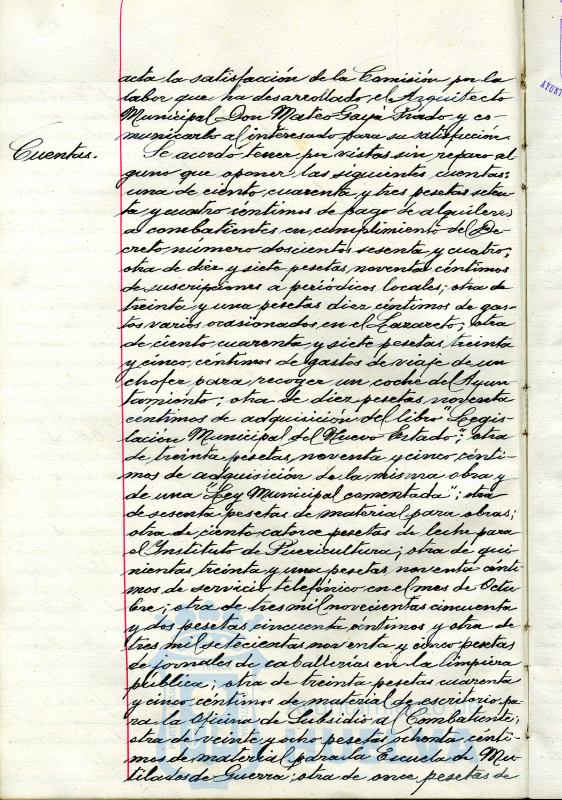 acta la satisfacción de la Comisión por la
labor que ha desarrollado el Arquitecto
Municipal Don Mateo Gaya Prado y co-
municarlo al interesado para su satisfacción.
Cuentas.
Se acordó tener por vistas sin reparo al
guno que oponer, las siguientes cuentas:
una de ciento cuarenta y tres pesetas seten
ta y cuatro céntimos de pago de alquileres
a combatientes en cumplimiento del De-
creto número doscientos sesenta y cuatro,
otra de diez y siete pesetas, noventa céntimos
de suscripciones a periódicos locales; otra de
treinta y una pesetas diez céntimos de gas-
tos varios ocasionados en el Lazareto; otra
de ciento cuarenta y siete pesetas treinta
y cinco céntimos de gastos de viaje de un
chofer para recoger un coche del Ayun
tamiento; otra de diez pesetas noventa
céntimos de adquisición del libro "Legis-
lación Municipal del Nuevo Estado"; otra
de treinta pesetas noventa y cinco cénti
mos de adquisición de la misma obra y
de una "Ley Municipal comentada"; otra
de sesenta pesetas de material para obras;
otra de ciento catorce pesetas de leche para
el Instituto de Puericultura; otra de qui-
nientas treinta y una pesetas noventa cénti
mos de servicio telefónico en el mes de Octu-
bre; otra de tres mil novecientas cincuenta
y dos pesetas cincuenta céntimos y otra de
tres mil setecientas noventa y cinco pesetas
de jornales de caballerías en la limpieza
pública; otra de treinta pesetas cuarenta
y cinco céntimos de material de escritorio pa-
ra la Oficina de Subsidio al Combatiente;
otra de veinte y ocho pesetas ochenta cénti
mos de material para la Escuela de Mu-
tilados de Guerra; otra de once pesetas de
HUELVA
AYUNT